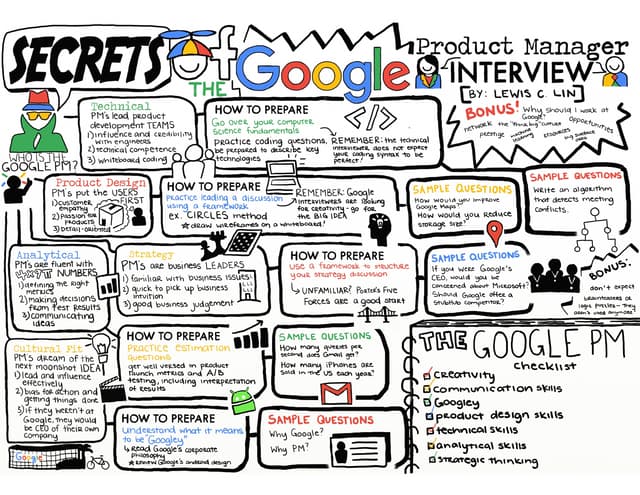 SECRETS of
THE Google
Product Manager
INTERVIEW
[BY: LEWIS C. LIN]
BONUS! Why should I work at
Google?
NETWORK the "think big" culture opportunities
prestige machine learning resources
WHO IS THE
GOOGLE PM?
Technical
PM's lead product
development TEAMS
1) influence and credibility
with engineers
2) technical competence
3) whiteboard coding
HOW TO PREPARE
Go over your computer
science fundamentals
PRACTICE coding questions,
be prepared to describe key
technologies
</>
REMEMBER: the technical
interviewer does not expect
your coding syntax to be
perfect!
Product Design
PM's put the USERS
FIRST
1) customer
empathy
2) passion for
products
3) detail-oriented
HOW TO PREPARE
Practice leading a discussion
using a framework
ex. CIRCLES method
*draw wireframes on a whiteboard!
REMEMBER: Google
interviewers are looking
for creativity - go for
the BIG IDEA
SAMPLE QUESTIONS
How would you improve
Google Maps?
How would you reduce
storage size?
SAMPLE QUESTIONS
Write an algorithm
that detects meeting
conflicts.
Analytical
PM's are fluent with
NUMBERS
1) defining the right
metrics
2) making decisions
from test results
3) communicating
ideas
Strategy
PM's are business LEADERS
1) familiar with business issues
2) quick to pick up business
intuition
3) good business judgement
HOW TO PREPARE
Use a framework to structure
your strategy discussion
UNFAMILIAR? Porter's Five
Forces are a good start
SAMPLE QUESTIONS
If you were Google's
CEO, would you be
concerned about Microsoft?
Should Google offer a
StubHub competitor?
BONUS:
don't expect
brainteasers or
logic puzzles- they
don't used anymore!
Cultural Fit
PM's dream of the
next moonshot IDEA
1) lead and influence
effectively
2) bias for action and
getting things done
3) if they weren't at
Google, they would
be CEO of their own
company
Google
HOW TO PREPARE
Practice estimation
questions
get well versed in product
launch metrics and A/B
testing, including interpretation
of results
SAMPLE QUESTIONS
How many queries per
second does Gmail get?
How many iPhones are
sold in the US each year?
HOW TO PREPARE
Understand what it means
to be "Googley"
Read Google's corporate
philosophy
*Review Google's android design
SAMPLE QUESTIONS
Why Google?
Why PM?
THE GOOGLE PM
checklist
creativity
communication skills
Googley
product design skills
technical skills
analytical skills
strategic thinking